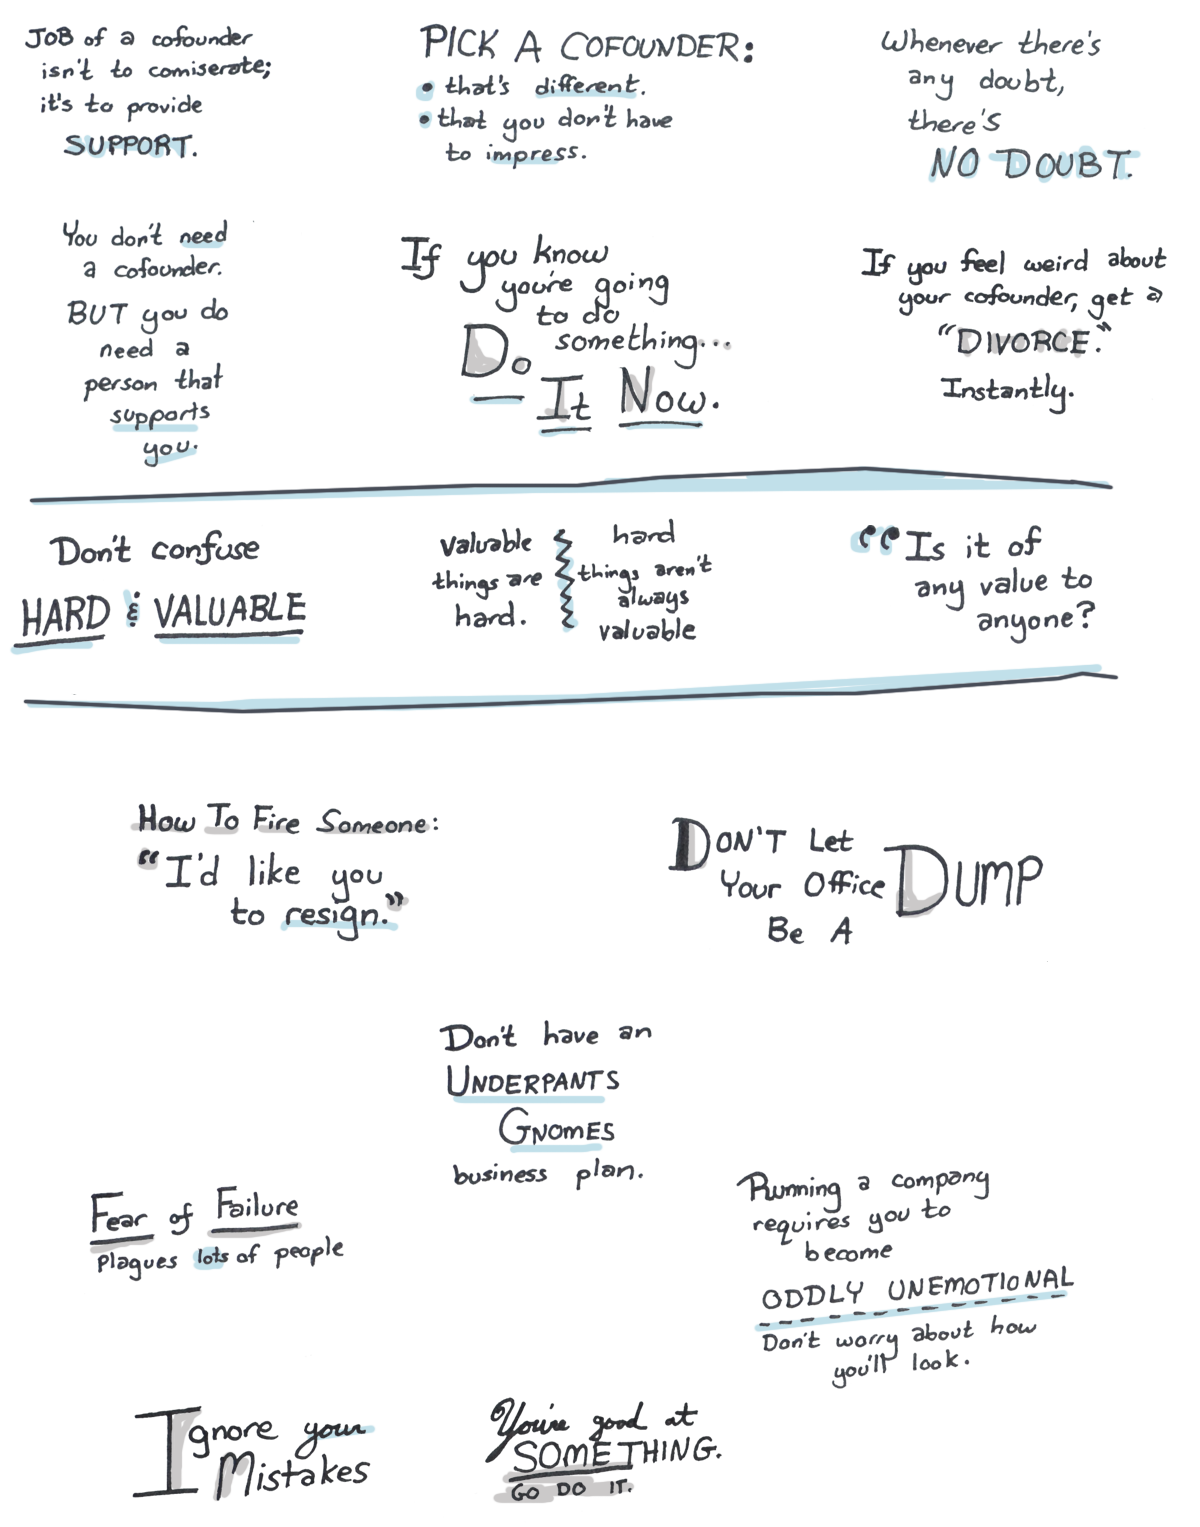 JOB of a cofounder
isn't to comiserate;
it's to provide
SUPPORT.
PICK A COFOUNDER:
• that's different.
• that you don't have
to impress.
Whenever there's
any doubt,
there's
NO DOUBT.
You don't need
a cofounder.
BUT you do
need a
person that
supports
you.
If you know
you're going
to do
something...
Do
It Now.
If you feel weird about
your cofounder, get a
"DIVORCE."
Instantly.
Don't confuse
HARD & VALUABLE
Valuable
things are
hard.
hard
things aren't
always
valuable
"Is it of
any value to
anyone?
How To Fire Someone:
"I'd like you
to resign."
DON'T Let
Your Office
Be A
DUMP
Don't have an
UNDERPANTS
GNOMES
business plan.
Fear of Failure
Plagues lots of people
Running a company
requires you to
become
ODDLY UNEMOTIONAL
Don't worry about how
you'll look.
Ignore your
Mistakes
You're good at
SOMETHING.
GO DO IT.